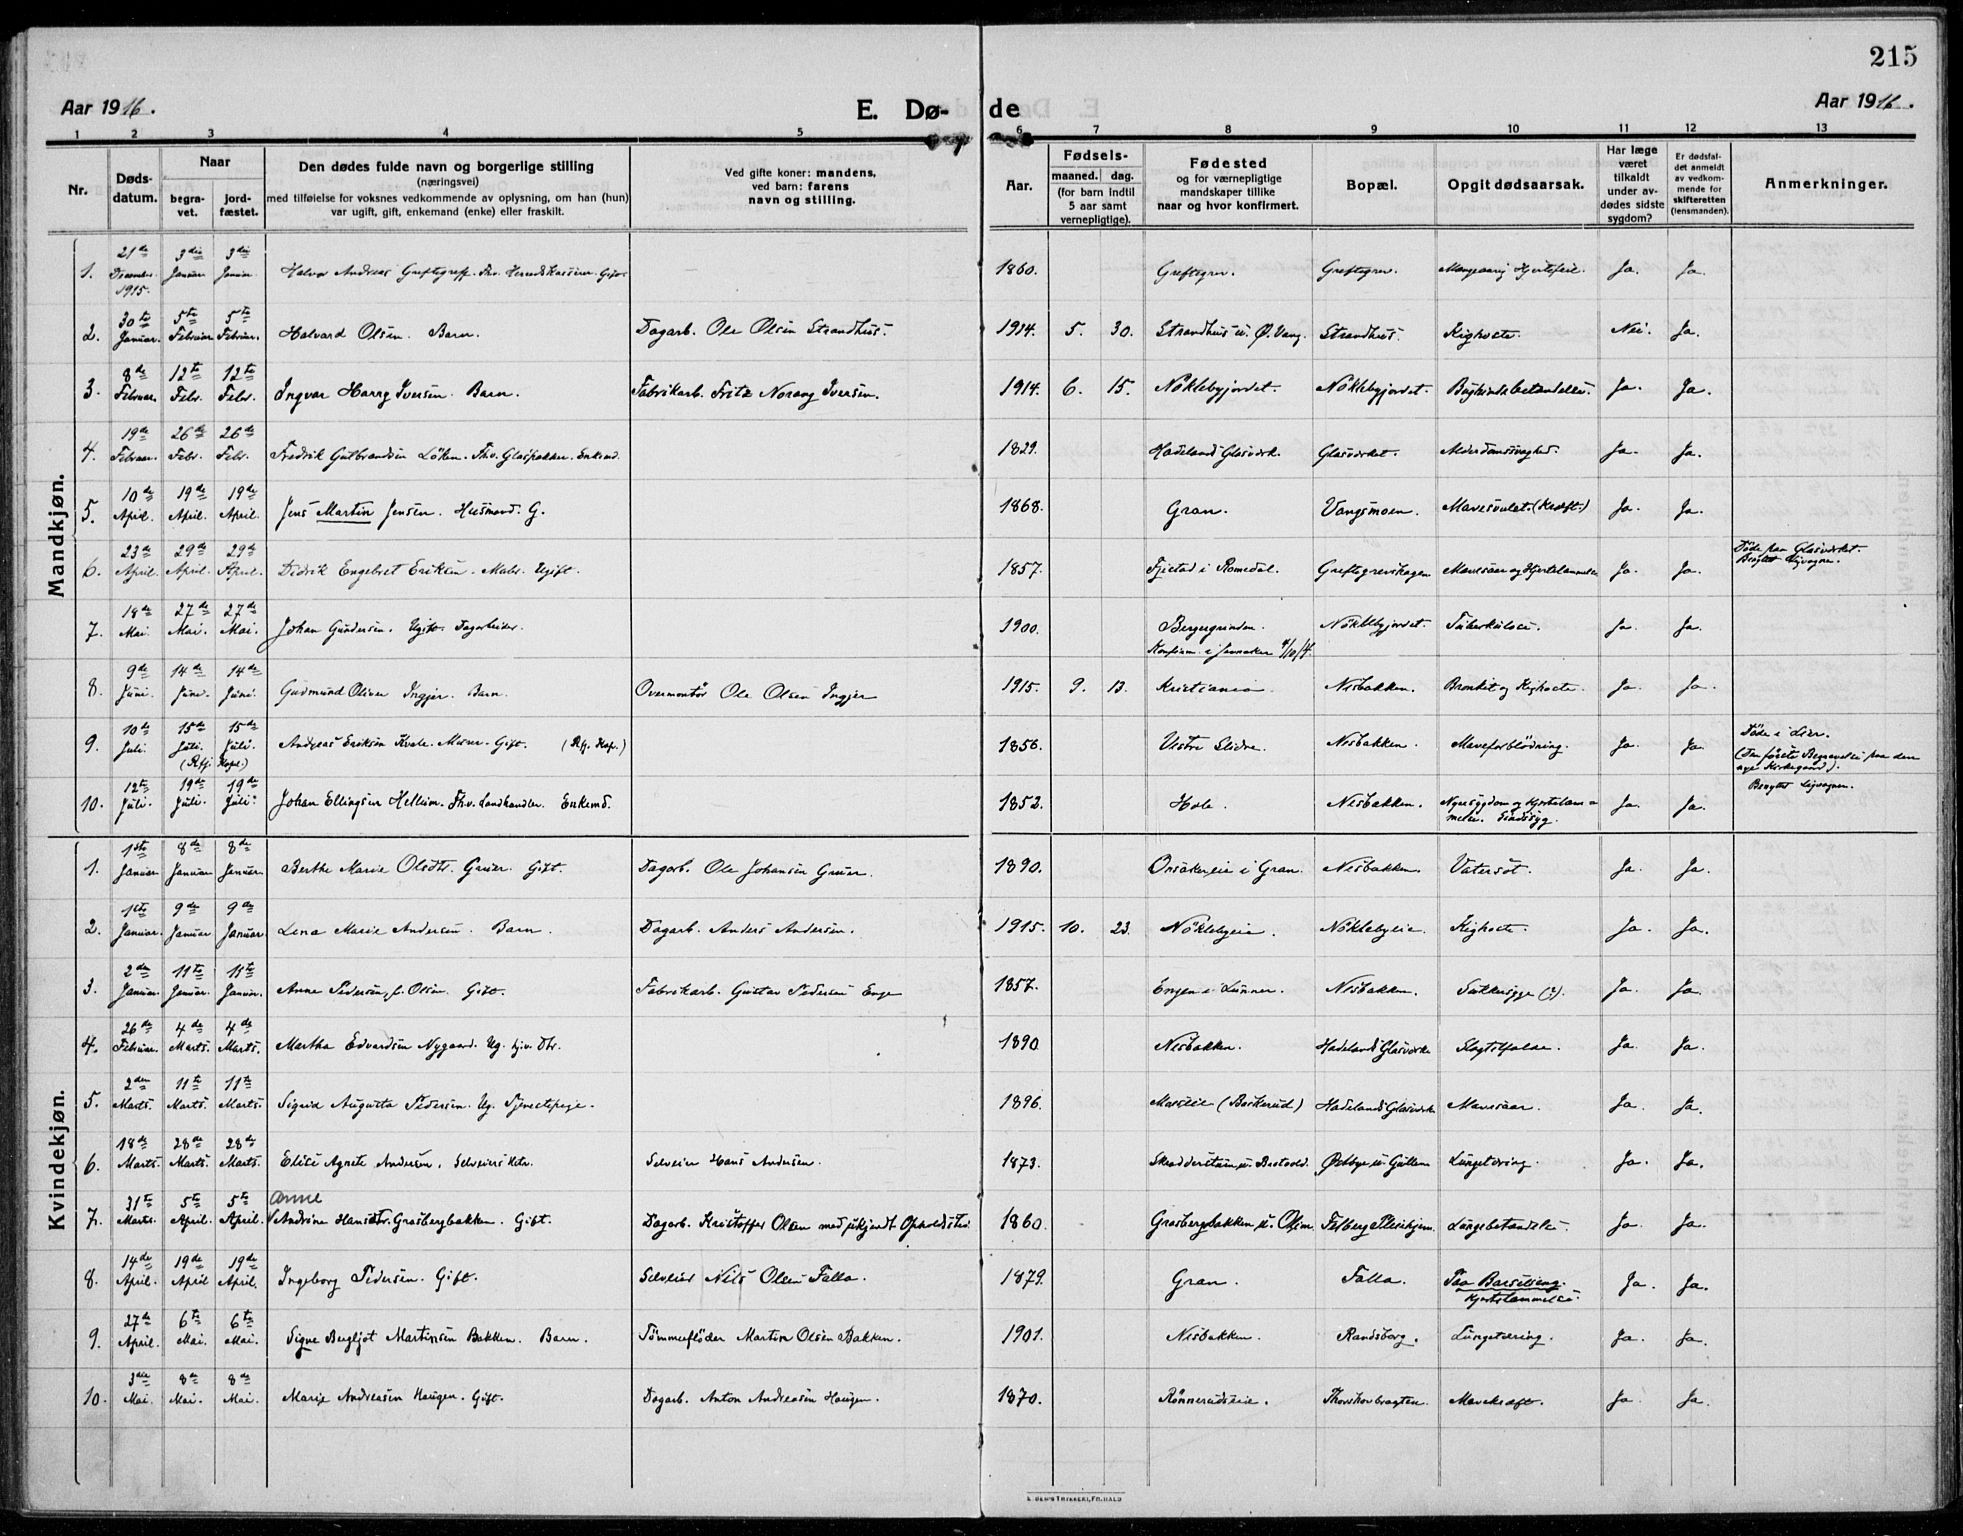 215
Aar 1916.
E. Dø-
de
Aar 1916.
1 2 3 4 5 6 7 8 9 10 11 12 13
Nr.
Døds-
datum.
Naar
begra-
vet.
jord-
fæstet.
Den dødes fulde navn og borgerlige stilling
(næringsvei)
med tilføielse for voksnes vedkommende av oplysning, om han (hun)
var ugift, gift, enkemand (enke) eller fraskilt.
Ved gifte koner: mandens,
ved barn: farens
navn og stilling.
Aar.
Fødsels-
maaned. dag.
(for barn indtil
5 aar samt
vernepligtige).
Fødested
og for værnepligtige
mandskaper tillike
naar og hvor konfirmert.
Bopæl.
Opgit dødsaarsak.
Har læge
været
tilkaldt
under av-
dødes sidste
sygdom?
Er dødsfal-
det anmeldt
av vedkom-
mende for
skifteretten
(lensmanden).
Anmerkninger.
Mandkjøn.
1. 21de Decembr. 1915. 3die Januar 3die Januar Halvor Andreas Greftegreff. Fhv. Herredskasserer. Gift. 1860. Greftegrev. Greftegrev. Mangeaarig Hjertefeil. Ja. Ja.
2. 30te Januar. 5te Februar 5te Februar. Halvard Olsen. Barn. Dagarb. Ole Olsen Strandhus. 1914. 5. 30. Strandhus u. Ø. Vang. Strandhus. Kighoste. Nei. Ja.
3. 8de Februar. 12te Febr. 12te Febr. Ingvar Harry Iversen. Barn. Fabrikarb. Fritz Norang Iversen. 1914. 6. 15. Nöklebyjordet. Nöklebyjordet. Bughindebetændelse. Ja. Ja.
4. 19de Februar. 26de Febr. 26de Febr. Fredrik Gulbrandsen Löken. Fhv. Glaspakker. Enkemd. 1829. Hadelands Glasværk. Glasværket. Alderdomssvaghed. Ja. Ja.
5. 10de April. 19de April. 19de April. Jens Martin Jensen. Husmand. G. 1868. Gran. Vangsmoen. Mavesvulst. (Kræft.) Ja. Ja.
6. 23de April. 29de April. 29de April. Didrik Engebret Eriksen. Maler. Ugift. 1857. Fjestad i Romedal. Greftegrevshagen Mavesaar og Hjertelammelse Ja. Ja. Döde paa Glasværket.
Benyttet Ligvognen.
7. 18de Mai. 27de Mai. 27de Mai. Johan Gundersen. Ugift. Dagarbeider. 1900. Bergergrinden.
Konfirm. i Jevnaker Nöklebyjordet. Tuberkulose. Ja. Ja.
8. 9de Juni. 14de Juni. 14de Juni. Gudmund Oliver Ingjer. Barn. Overmontör Ole Olsen Ingjer 1915. 9. 13. Kristiania. Nesbakken. Bronkit og Kighoste. Ja. Ja.
9. 10de Juli. 15de Juli. 15de Juli. Andreas Eriksen Kvale. Murer. Gift. 1856. Vestre Slidre. Nesbakken. Maveforblödning. Ja. Ja. Döde i Lier.
(Den første Begravelse paa den
nye Kirkegaard).
10. 12te Juli. 19de Juli. 19de Juli. Johan Ellingsen Hellum. Fhv. Landhandler. Enkemd. 1852. Hole. Nesbakken. Nyresygdom og Hjertelam-
melse. Sindssyg. Ja. Ja. Benyttet Ligvognen.
Kvindekjøn.
1. 1ste Januar. 8de Januar 8de Januar. Berthe Marie Olsdtr. Gruer. Gift. Dagarb. Ole Johansen Gruer. 1890. Onsakereie i Gran. Nesbakken. Vatersot. Ja. Ja.
2. 1ste Januar. 9de Januar 9de Januar Lena Marie Andersen. Barn. Dagarb. Anders Andersen. 1915. 10. 23. Nöklebyeie. Nöklebyeie. Kighoste. Ja. Ja.
3. 2den Januar. 11te Januar. 11te Januar. Anne Pedersen, f. Olsen. Gift. Fabrikarb. Gustav Pedersen Enge 1857. Engen i Lunner. Nesbakken. Sukkersyge (?). Ja. Ja.
4. 26de Februar. 4de Marts. 4de Marts. Martha Edvardsen Nygaard. Ug. hjv. Dtr. 1890 Nesbakken. Hadelands Glasværk Slagtilfælde. Ja. Ja.
5. 2den Marts. 11te Marts. 11te Marts. Sigrid Augusta Pedersen. Ug. Tjenestepige. 1896. Moseeie (Buskerud) Hadelands Glasværk Mavesaar. Ja. Ja.
6. 18de Marts. 28de Marts. 28de Marts. Elise Agnete Andersen. Selveiers Kone. Selveier Hans Andersen. 1873. Østbye u. Gullen Lungetæring. Ja. Ja.
Anne
7. 31te Marts. 5te April. 5te April. √Andrine Hansdtr. Grasbergbakken. Gift. Dagarb. Kristoffer Olsen med ukjendt Opholdsted 1860. Grasbergbakken u. Olum. Felberg Pleiehjem. Lungebetændelse. Ja. Ja.
8. 14de April. 19de April 19de April. Ingeborg Pedersen. Gift. Selveier Nils Olsen Falla. 1879. Gran. Falla. Paa Barselseng.
Hjertelammelse. Ja. Ja.
9. 27de April. 6te Mai. 6te Mai. Signe Bergljot Martinsen Bakken. Barn. Tömmerflöder Martin Olsen Bakken. 1901. Nesbakken. Randsborg. Lungetæring. Ja. Ja.
10. 3die Mai. 8de Mai. 8de Mai. Marie Andreasen Haugen. Gift. Dagarb. Anton Andreasen Haugen. 1870. Rönnerudseie. Thorshovbraaten. Mavekræft. Ja. Ja.